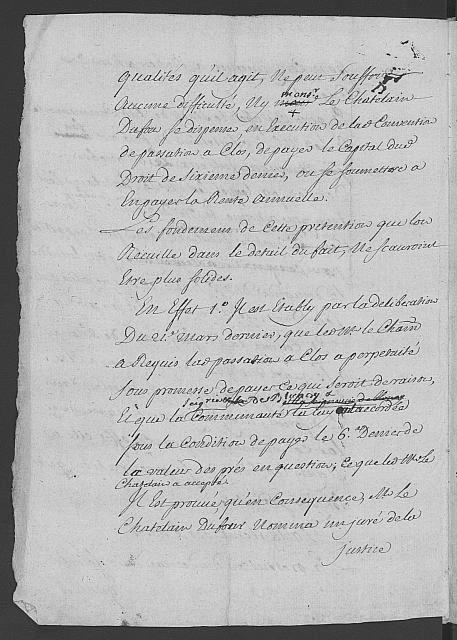 qualités qu'il agit, Ne peut Souffrir
Aucune difficulté, Ny monsr. Le Chatelain
Dufour se dispense, en Execution de lade Convention
de passation a Clos, de payer le Capital dud.
Droit de Sixieme denier, ou se soumettre a
En payer la Rente annuelle.
Les fondemens de Cette pretention que lon
Recuille dans le detail du fait, Ne Scauroint
Etre plus solides.
En Effet 1.º Il est Etably par la deliberation
Du 21.e mars dernier, que led. Mr. le Chain
a Requis lad. passation a Clos a perpetuité
Sous promesse de payer ce qui seroit de raison,
Seigrie de St.
Et que la Communauté la luy accordée
Sous la Condition de payer le 6.e Denier de
la valeur des prés en question; Ce que led. Mr. le
Chatelain a accepté.
Il Est prouvé, qu'en Consequence, Mr. le
Chatelain Dufour Nomma un juré de la
justice